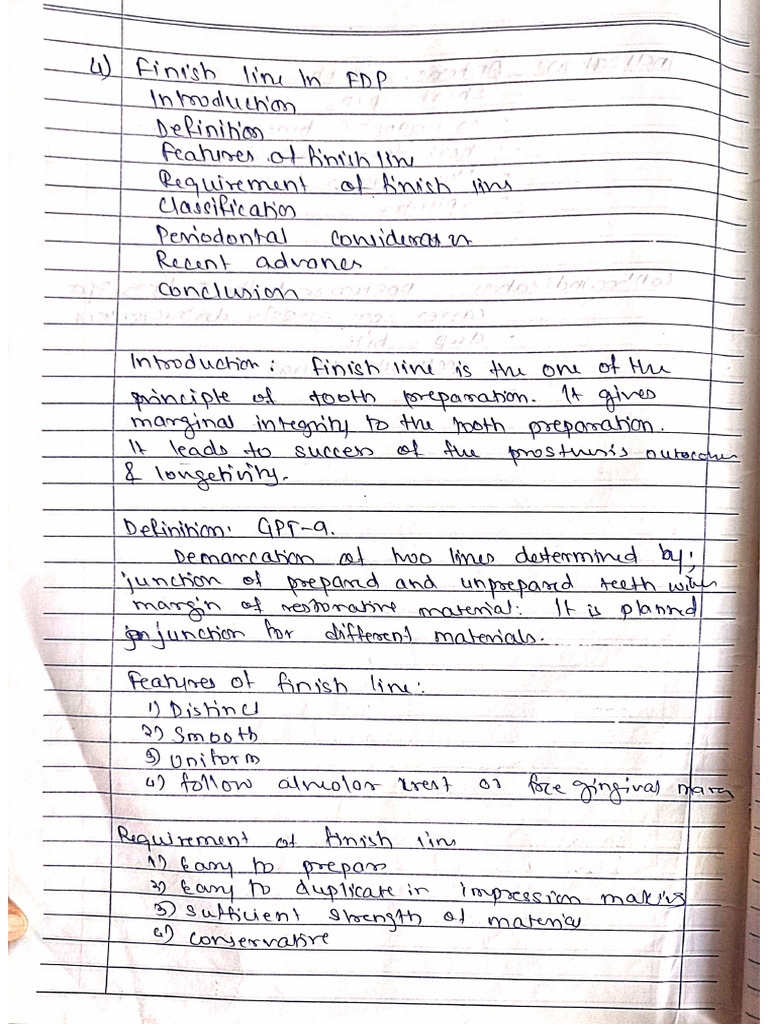 4) Finish line in FDP
Introduction
Definition
Features of finish line
Requirement of finish line
Classification
Periodontal consideration
Recent advances
Conclusion
Introduction: Finish line is the one of the
principle of tooth preparation. It gives
marginal integrity to the tooth preparation.
It leads to success of the prosthesis outcome
& longetivity.
Definition: GPT-9.
Demarcation of two lines determined by;
junction of prepared and unprepared teeth with
margin of restorative material. It is planned
junction for different materials.
Features of finish line:
1) Distinct
2) Smooth
3) Uniform
4) follow alveolar crest or free gingival marg
Requirement of finish line
1) Easy to prepare
2) Easy to duplicate in impression making
3) Sufficient strength of material
4) conservative